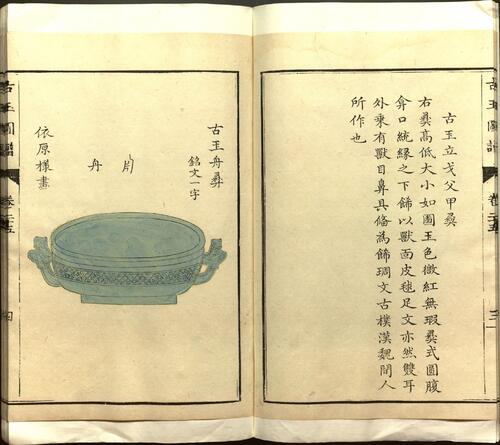 古玉立戈父甲彝
右彝高低大小如圖玉色微紅無瑕彝式圓腹
弇口純緣之下飾以獸面皮毬足文亦然雙耳
外乘有獸目鼻具俻為飾琱文古樸漢魏間人
所作也
古玉圖譜
卷二十五
古玉舟彝
銘文一字
舟
依原樣畫
古玉圖譜
卷二十五
四